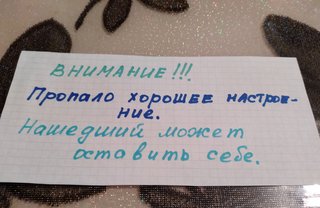 ВНИМАНИЕ!!!
Пропало хорошее настрое-
ние.
Нашедший может
оставить себе.